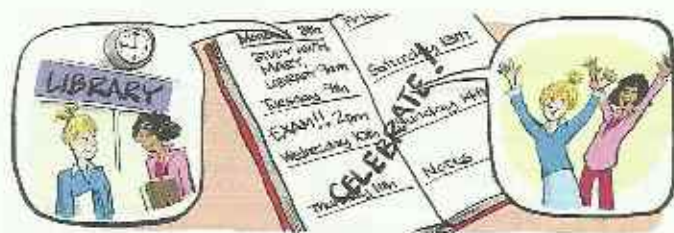 LIBRARY
Monday 8th
STUDY WITH
MARY,
LIBRARY 9am
Tuesday 9th
EXAM!! 2pm
Wednesday 10th
Thursday 11th
Saturday 13th
Sunday 14th
NOTES
CELEBRATE!